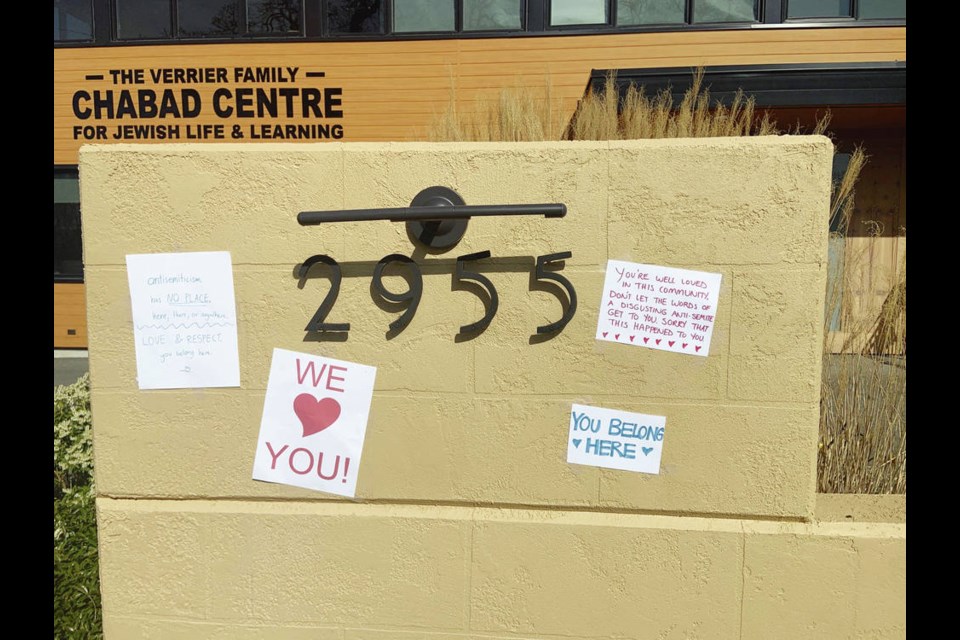 THE VERRIER FAMILY
CHABAD CENTRE
FOR JEWISH LIFE & LEARNING
2955
antisemiticism
has NO PLACE,
here, there, or anywhere.
LOVE & RESPECT
you belong here.
WE
YOU!
YOU'RE WELL LOVED
IN THIS COMMUNITY.
DON'T LET THE WORDS OF
A DISGUSTING ANTI-SEMITE
GET TO YOU. SORRY THAT
THIS HAPPENED TO YOU
YOU BELONG
HERE